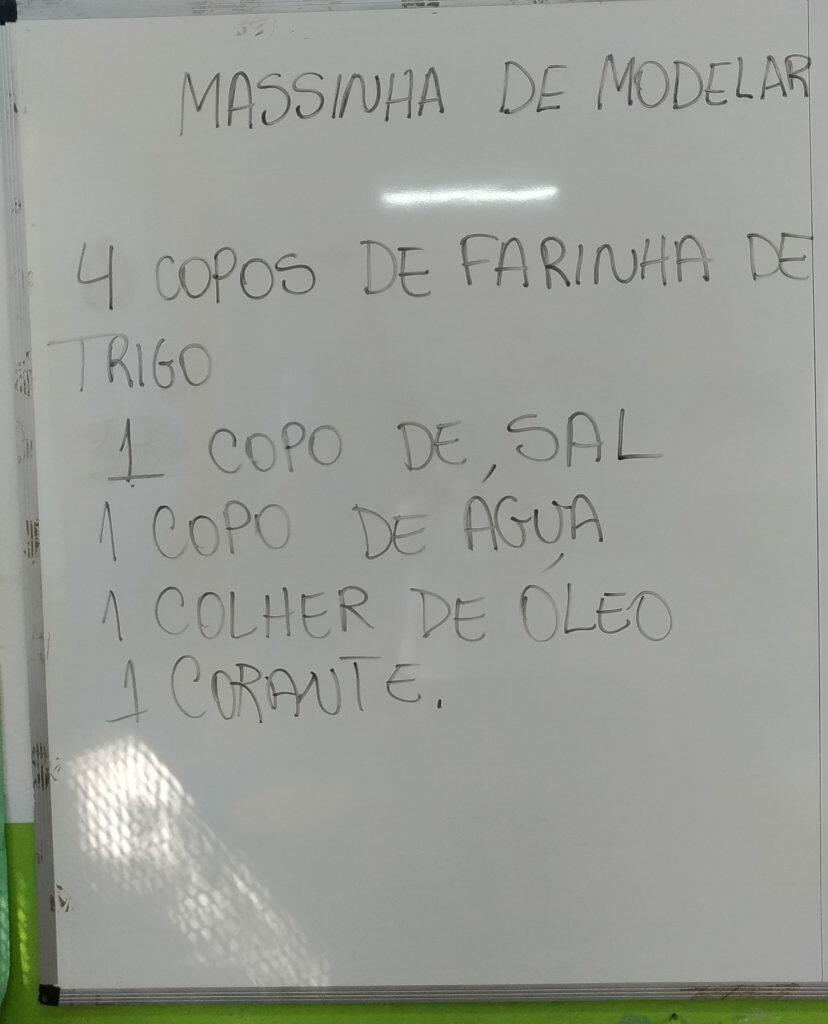 MASSINHA DE MODELAR
4 COPOS DE FARINHA DE
TRIGO
1 COPO DE SAL
1 COPO DE ÁGUA
1 COLHER DE ÓLEO
1 CORANTE.